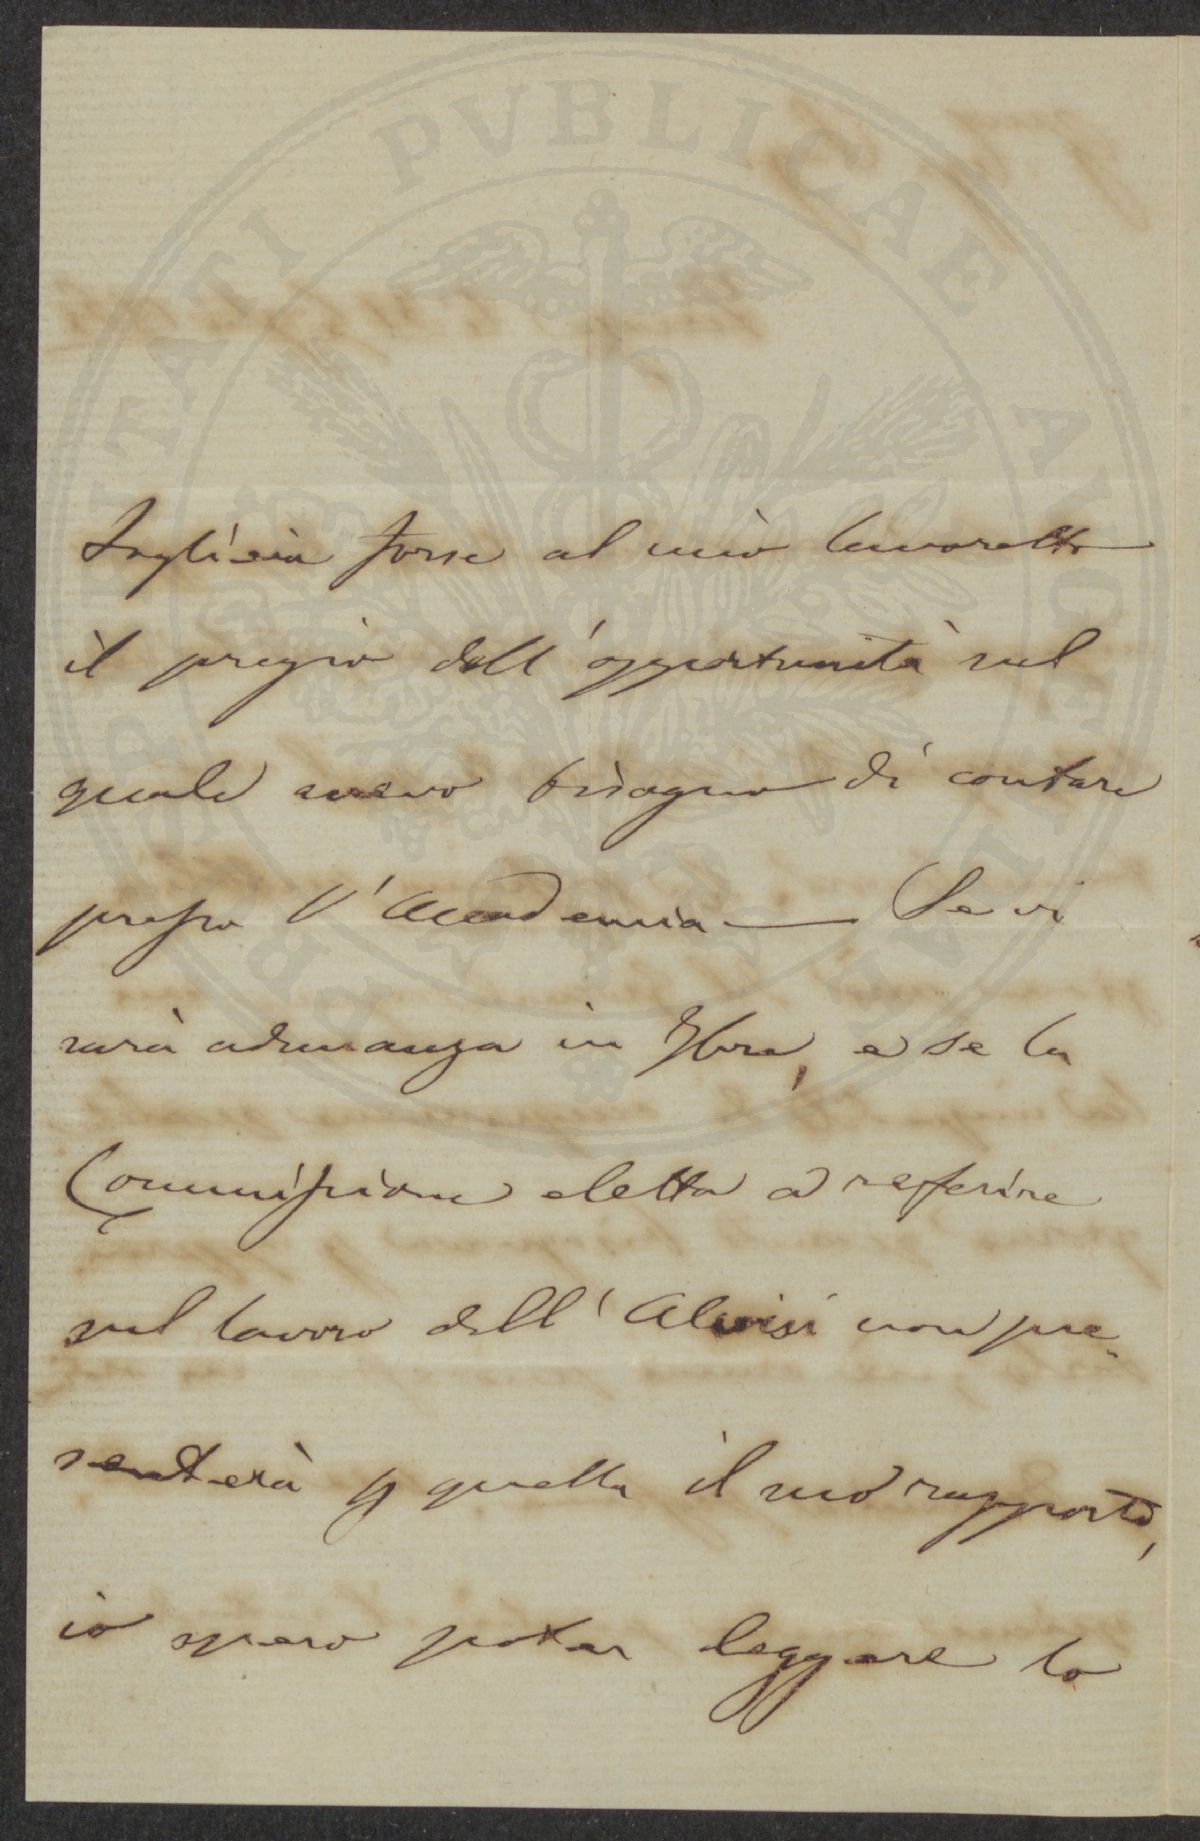 PROSPERITATI PUBLICAE AVGENDAE
Toglieria forse al mio lavoretto
il pregio dell'opportunità sul
quale avevo bisogno di contare
presso l'Accademia — Se vi
sarà adunanza in 9bre, e se la
Commissione eletta a refferire
sul lavoro dell'Aloisi non pre-
senterà p quella il suo rapporto,
io spero poter leggere lo